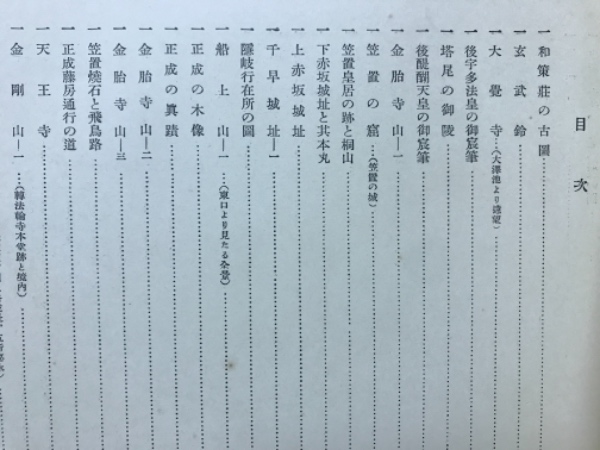 目次
一和策莊の古圖
一玄武鈴
一大覺寺…(大澤池より遠望)
一後宇多法皇の御宸筆
一塔尾の御陵
一後醍醐天皇の御宸筆
一金胎寺山―一
一笠置の窟…(笠置の城)
一笠置皇居の跡と桐山
一下赤坂城址と其本丸
一上赤坂城址
一千早城址―一
一隱岐行在所の圖
一船上山―一…(東口より見たる全景)
一正成の木像
一正成の眞蹟
一金胎寺山―二
一金胎寺山―三
一笠置燒石と飛鳥路
一正成藤房通行の道
一天王寺
一金剛山―一…(轉法輪寺本堂跡と境內)